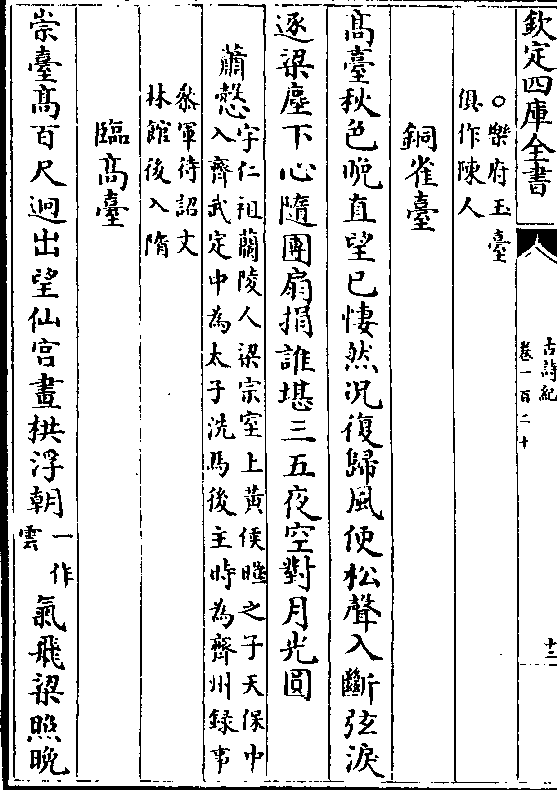 欽定四庫全書
古詩紀
卷一百二十
十三
○樂府玉臺
俱作陳人
銅雀臺
髙臺秋色晩直望已悽然况復歸風便松聲入斷弦淚
逐梁塵下心隨團扇捐誰堪三五夜空對月光圓
蕭慤
字仁祖蘭陵人梁宗室上黄侯曄之子天保中
入齊武定中為太子洗馬後主時為齊州録事
叅軍待詔文
林館後入隋
臨髙臺
崇臺髙百尺迥出望仙宫畫栱浮朝
一作
雲
氣飛梁照晩